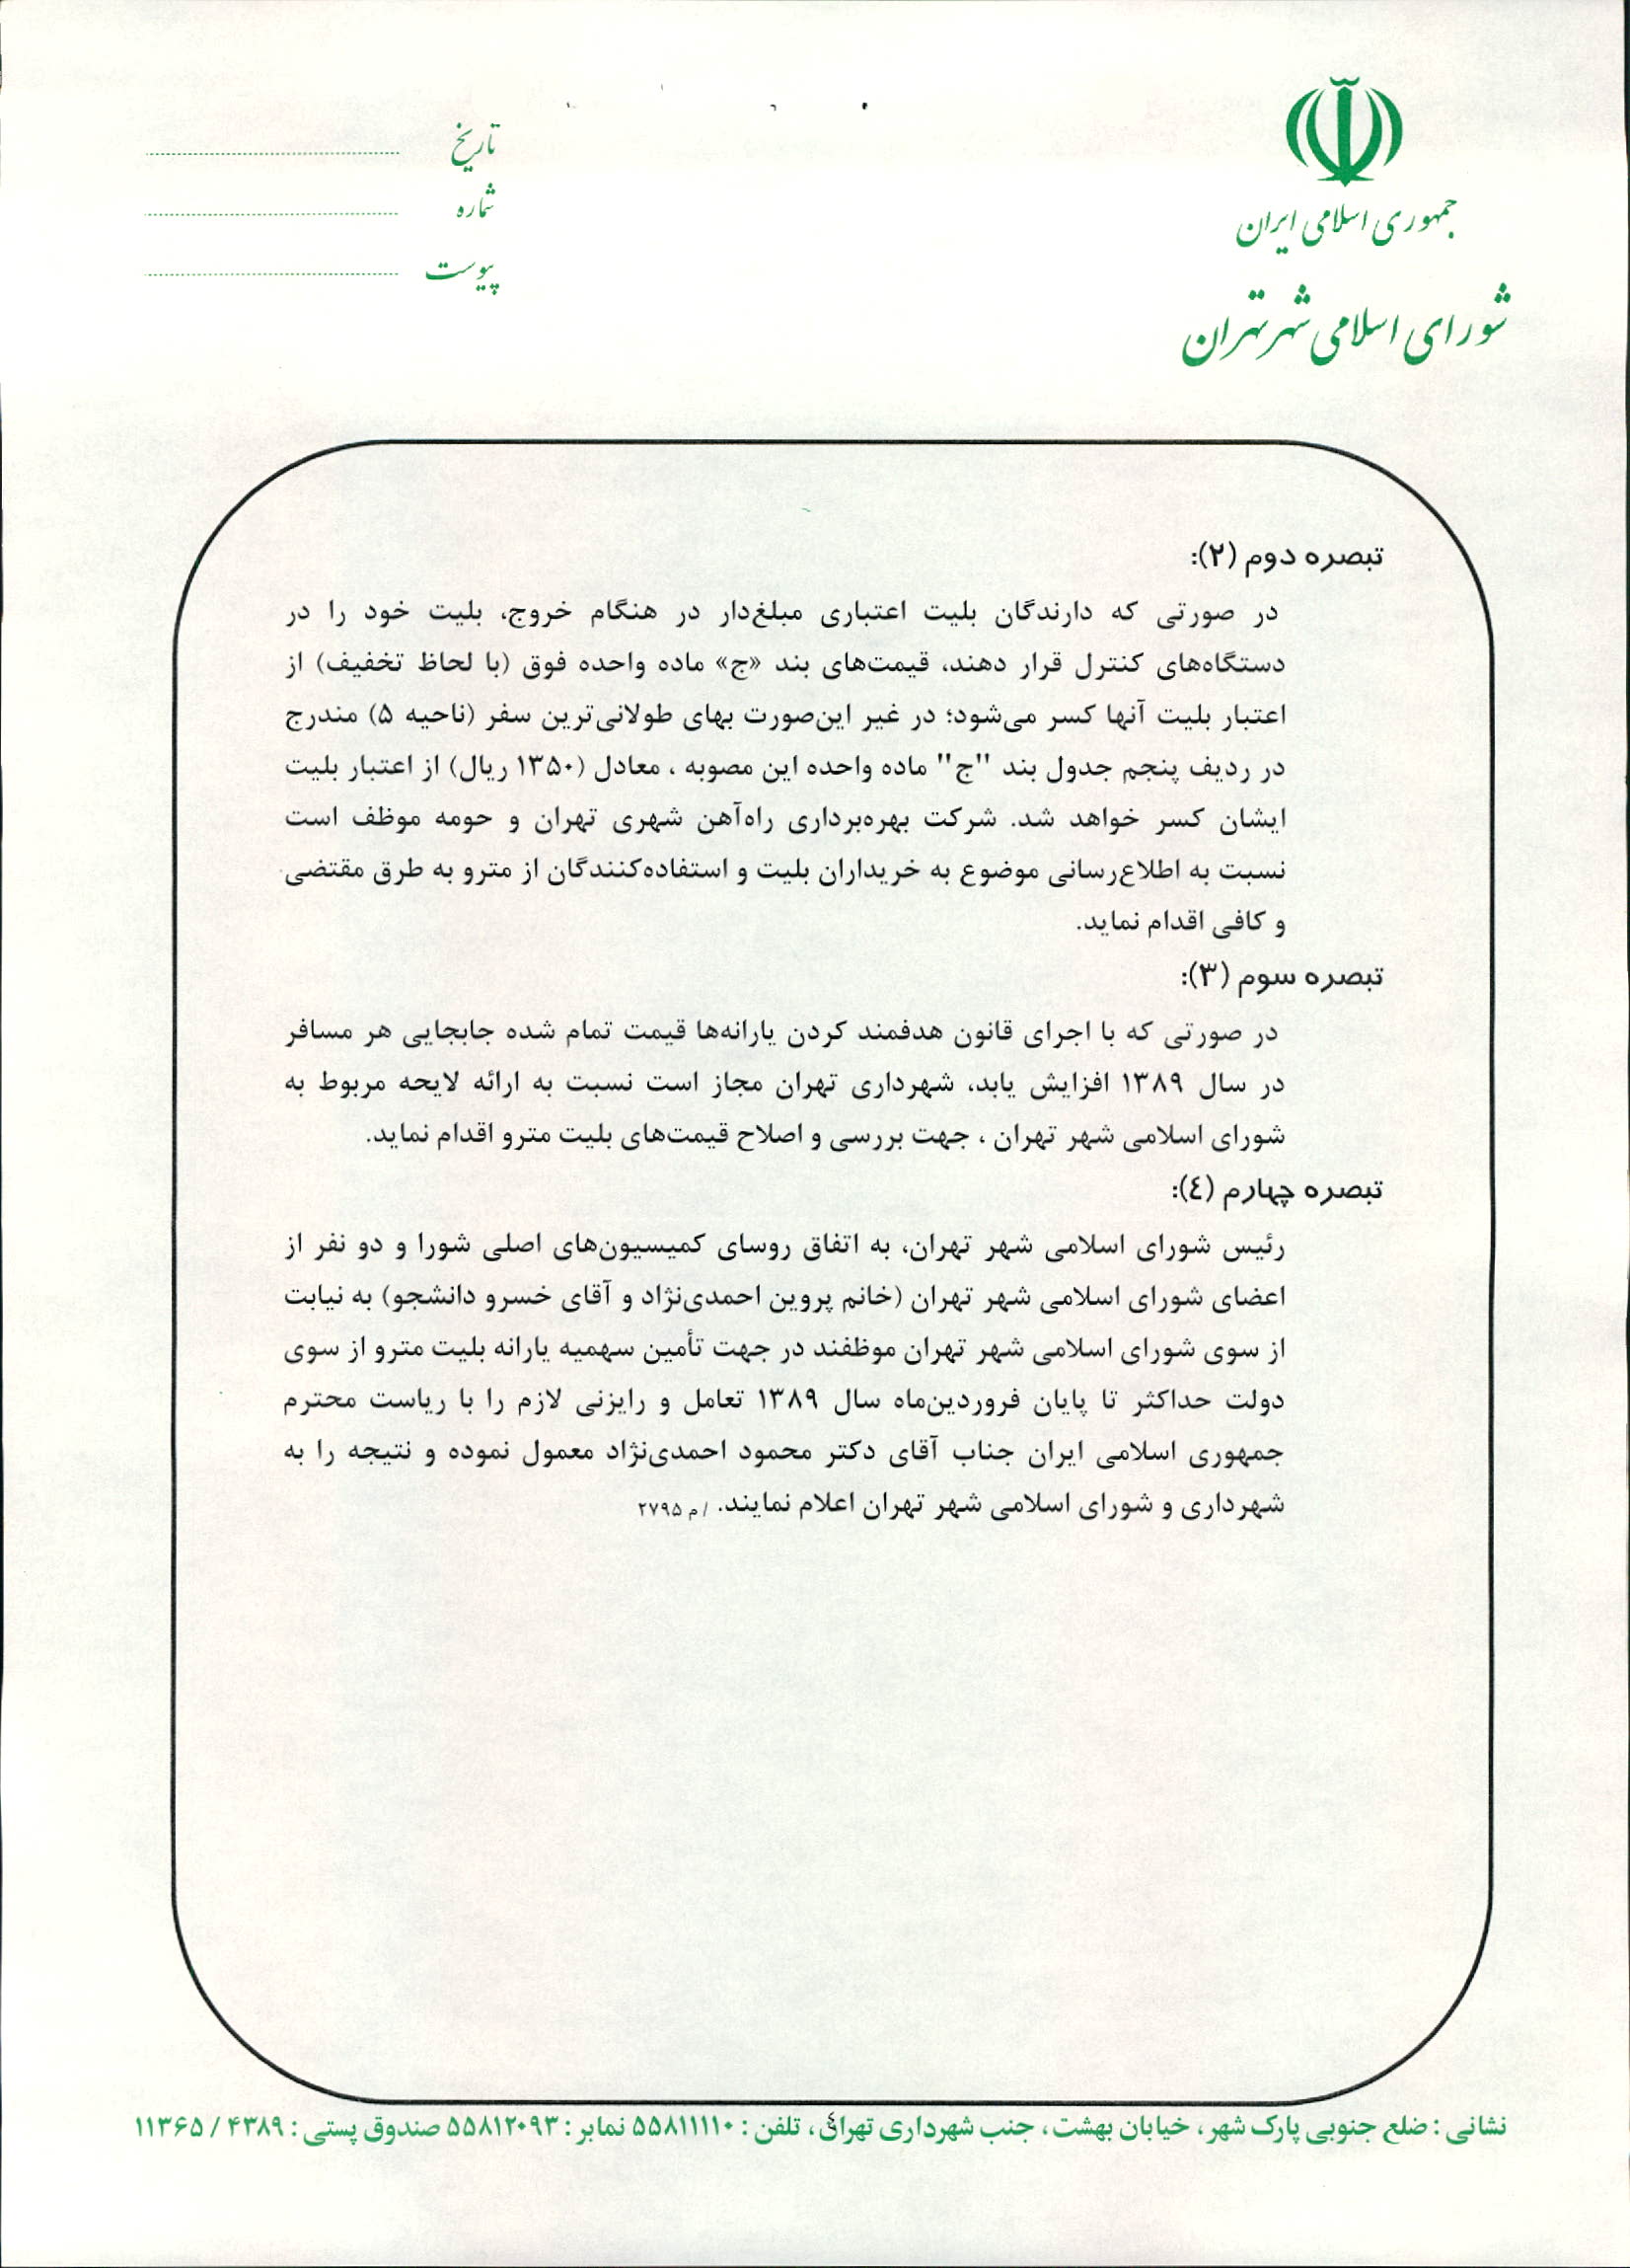 جمهوری اسلامی ایران
شورای اسلامی شهر تهران
تاریخ
شماره
پیوست
تبصره دوم (۲):
در صورتی که دارندگان بلیت اعتباری مبلغ‌دار در هنگام خروج، بلیت خود را در
دستگاه‌های کنترل قرار دهند، قیمت‌های بند «ج» ماده واحده فوق (با لحاظ تخفیف) از
اعتبار بلیت آنها کسر می‌شود؛ در غیر این‌صورت بهای طولانی‌ترین سفر (ناحیه ۵) مندرج
در ردیف پنجم جدول بند "ج" ماده واحده این مصوبه ، معادل (۱۳۵۰ ریال) از اعتبار بلیت
ایشان کسر خواهد شد. شرکت بهره‌برداری راه‌آهن شهری تهران و حومه موظف است
نسبت به اطلاع‌رسانی موضوع به خریداران بلیت و استفاده‌کنندگان از مترو به طرق مقتضی
و کافی اقدام نماید.
تبصره سوم (۳):
در صورتی که با اجرای قانون هدفمند کردن یارانه‌ها قیمت تمام شده جابجایی هر مسافر
در سال ۱۳۸۹ افزایش یابد، شهرداری تهران مجاز است نسبت به ارائه لایحه مربوط به
شورای اسلامی شهر تهران ، جهت بررسی و اصلاح قیمت‌های بلیت مترو اقدام نماید.
تبصره چهارم (٤):
رئیس شورای اسلامی شهر تهران، به اتفاق روسای کمیسیون‌های اصلی شورا و دو نفر از
اعضای شورای اسلامی شهر تهران (خانم پروین احمدی‌نژاد و آقای خسرو دانشجو) به نیابت
از سوی شورای اسلامی شهر تهران موظفند در جهت تأمین سهمیه یارانه بلیت مترو از سوی
دولت حداکثر تا پایان فروردین‌ماه سال ۱۳۸۹ تعامل و رایزنی لازم را با ریاست محترم
جمهوری اسلامی ایران جناب آقای دکتر محمود احمدی‌نژاد معمول نموده و نتیجه را به
شهرداری و شورای اسلامی شهر تهران اعلام نمایند. /م ۲۷۹۵
٤
نشانی : ضلع جنوبی پارک شهر ، خیابان بهشت ، جنب شهرداری تهران ، تلفن : ۵۵۸۱۱۱۱۰ نمابر : ۵۵۸۱۲۰۹۳ صندوق پستی : ۴۳۸۹ / ۱۱۳۶۵